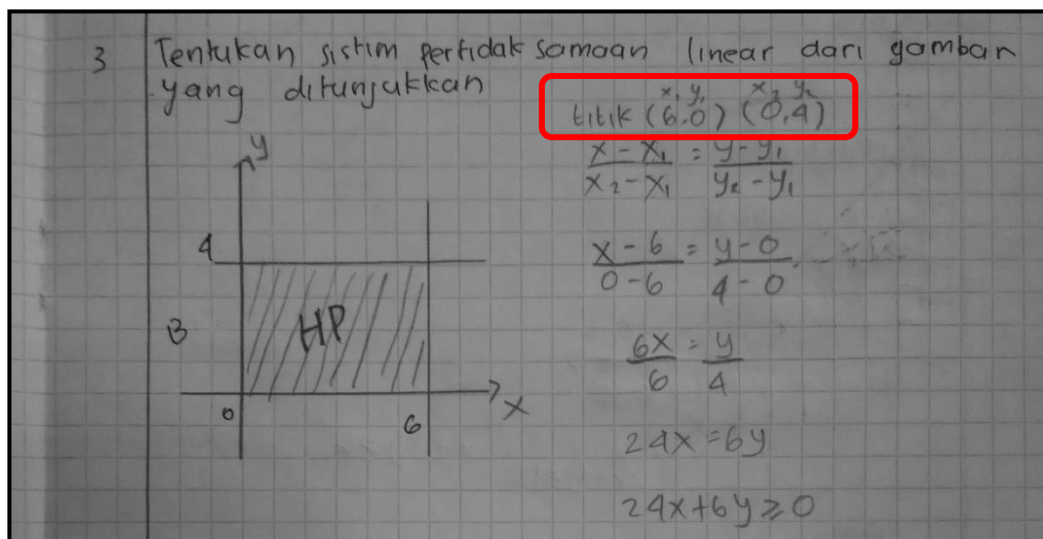 3 Tentukan sistim pertidak samaan linear dari gambar
yang ditunjukkan
x₁ y₁ x₂ y₂
titik (6.0) (0,4)
x - x₁ / x₂ - x₁ = y - y₁ / y₂ - y₁
x - 6 / 0 - 6 = y - 0 / 4 - 0
6x / 6 = y / 4
24x = 6y
24x + 6y ≥ 0
y
4
B
HP
0
6
x